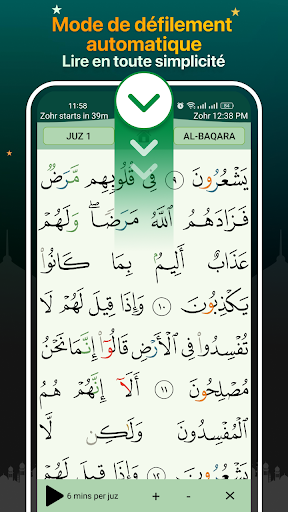 Mode de défilement
automatique
Lire en toute simplicité
11:58
Zohr starts in 39m
Zohr 12:38 PM
JUZ 1
AL-BAQARA
يَشْعُرُونَ ٩ فِي قُلُوبِهِم مَّرَضٌ
فَزَادَهُمُ ٱللَّهُ مَرَضًا ۖ وَلَهُمْ
عَذَابٌ أَلِيمٌۢ بِمَا كَانُوا۟
يَكْذِبُونَ ١٠ وَإِذَا قِيلَ لَهُمْ لَا
تُفْسِدُوا۟ فِي ٱلْأَرْضِ قَالُوٓا۟ إِنَّمَا نَحْنُ
مُصْلِحُونَ ١١ أَلَآ إِنَّهُمْ هُمُ
ٱلْمُفْسِدُونَ وَلَٰكِن لَّا
يَشْعُرُونَ ١٢ وَإِذَا قِيلَ لَهُمْ
6 mins per juz + - ×